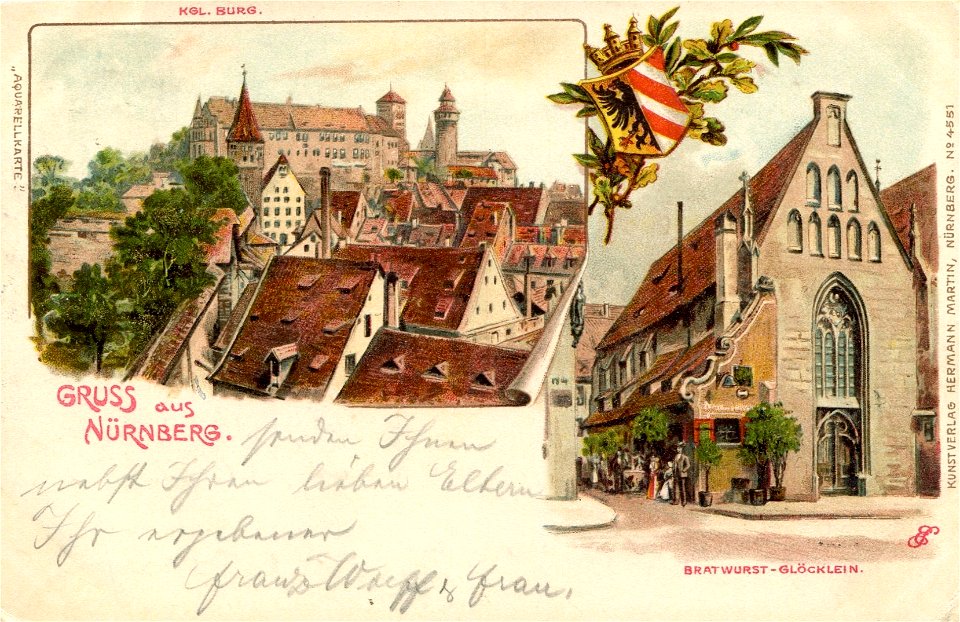 KGL. BURG.
„AQUARELLKARTE."
GRUSS aus
NÜRNBERG.
senden Ihnen
nebst Ihren lieben Eltern
Ihr ergebener
Franz & Frau.
BRATWURST-GLÖCKLEIN.
KUNSTVERLAG HERMANN MARTIN, NÜRNBERG. No 4551